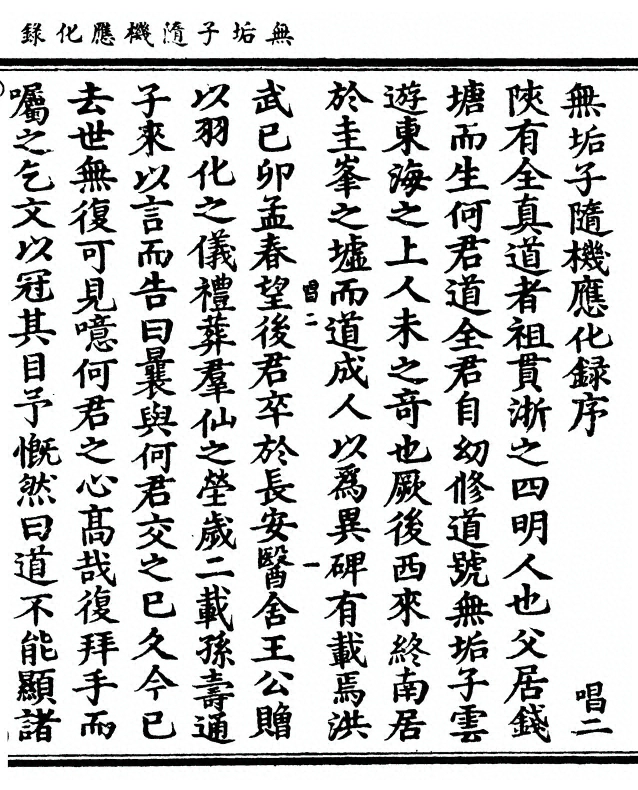 無垢子隨機應化錄
無垢子隨機應化録序
唱二
陝有全真道者祖貫浙之四明人也父居錢
塘而生何君道全君自幼修道號無垢子雲
遊東海之上人未之奇也厥後西來終南居
於圭峯之墟而道成人以爲異碑有載焉洪
唱二
一
武己卯孟春望後君卒於長安醫舍王公贈
以羽化之儀禮葬羣仙之塋歲二載孫壽通
子來以言而告曰曩與何君交之已久今已
去世無復可見噫何君之心髙哉復拜手而
囑之乞文以冠其目予慨然曰道不能顯諸